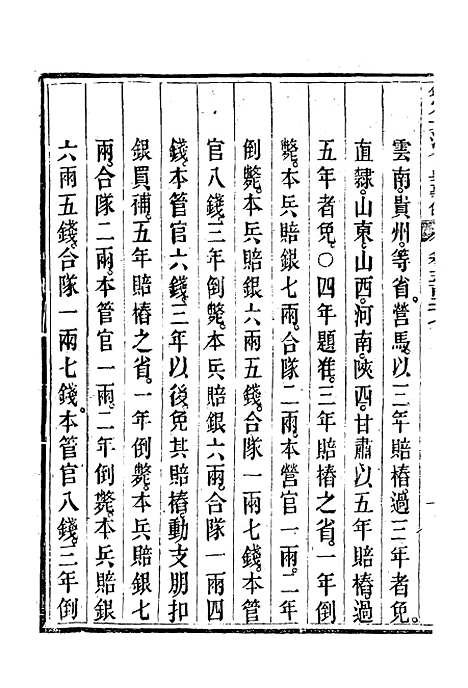 雲南。貴州。等省。營馬。以三年賠樁。過三年者免。
直隸。山東。山西。河南。陝西。甘肅。以五年賠樁。過
五年者免。〇四年題准。三年賠樁之省。一年倒
斃。本兵賠銀七兩。合隊二兩。本營官一兩。二年
倒斃。本兵賠銀六兩五錢。合隊一兩七錢。本管
官八錢。三年倒斃。本兵賠銀六兩。合隊一兩四
錢。本管官六錢。三年以後。免其賠樁。動支朋扣
銀買補。五年賠樁之省。一年倒斃。本兵賠銀七
兩。合隊二兩。本管官一兩。二年倒斃。本兵賠銀
六兩五錢。合隊一兩七錢。本管官八錢。三年倒